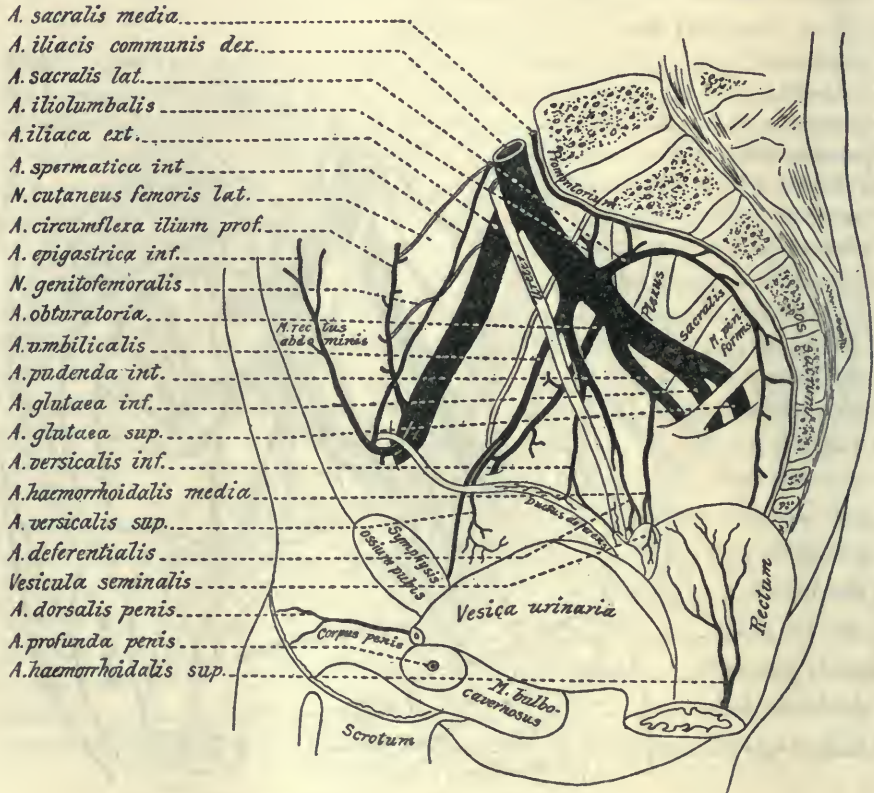 A. sacralis media
A. iliacis communis dex.
A. sacralis lat.
A. iliolumbalis
A. iliaca ext.
A. spermatica int
N. cutaneus femoris lat.
A. circumflexa ilium prof.
A. epigastrica inf.
N. genitofemoralis
A. obturatoria
A. umbilicalis
A. pudenda int.
A. glutaea inf.
A. glutaea sup.
A. versicalis inf.
A. haemorrhoidalis media
A. versicalis sup.
A. deferentialis
Vesicula seminalis
A. dorsalis penis
A. profunda penis
A. haemorrhoidalis sup.
Promontorium
Ureter
Plexus
sacralis
M. piri
formis
Os
sacrum
M. rectus
abdominis
Ductus deferens
Symphysis
ossium pubis
Vesica urinaria
Rectum
Corpus penis
M. bulbo-
cavernosus
Scrotum